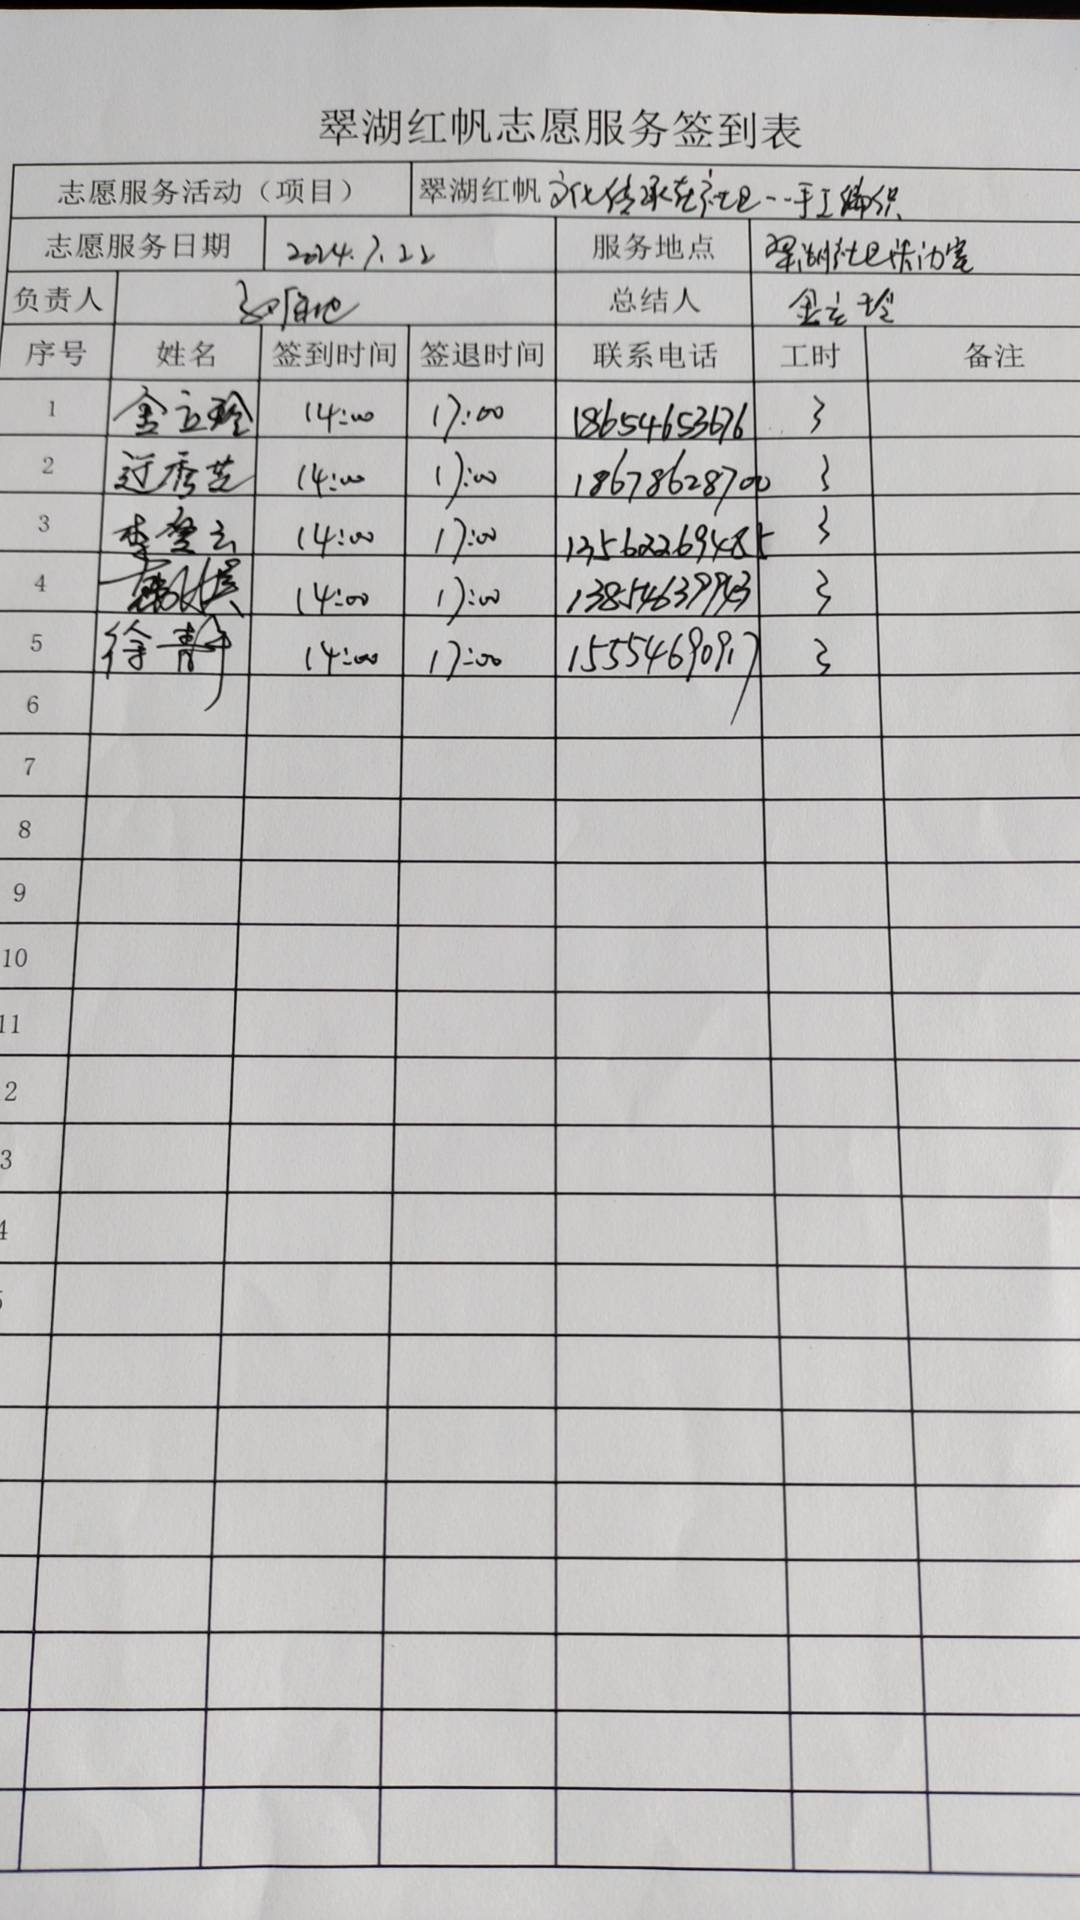 翠湖红帆志愿服务签到表
志愿服务活动（项目） 翠湖红帆 文化传承在社区--手工编织
志愿服务日期 2024.7.22 服务地点 翠湖社区活动室
负责人 总结人 金立玲
序号 姓名 签到时间 签退时间 联系电话 工时 备注
1 金立玲 14:00 17:00 18654653676 3
2 过秀芝 14:00 17:00 18678628700 3
3 李 云 14:00 17:00 13562269485 3
4 14:00 17:00 13854639943 3
5 徐静 14:00 17:00 15554690917 3
6
7
8
9
10
11
2
3
4
5